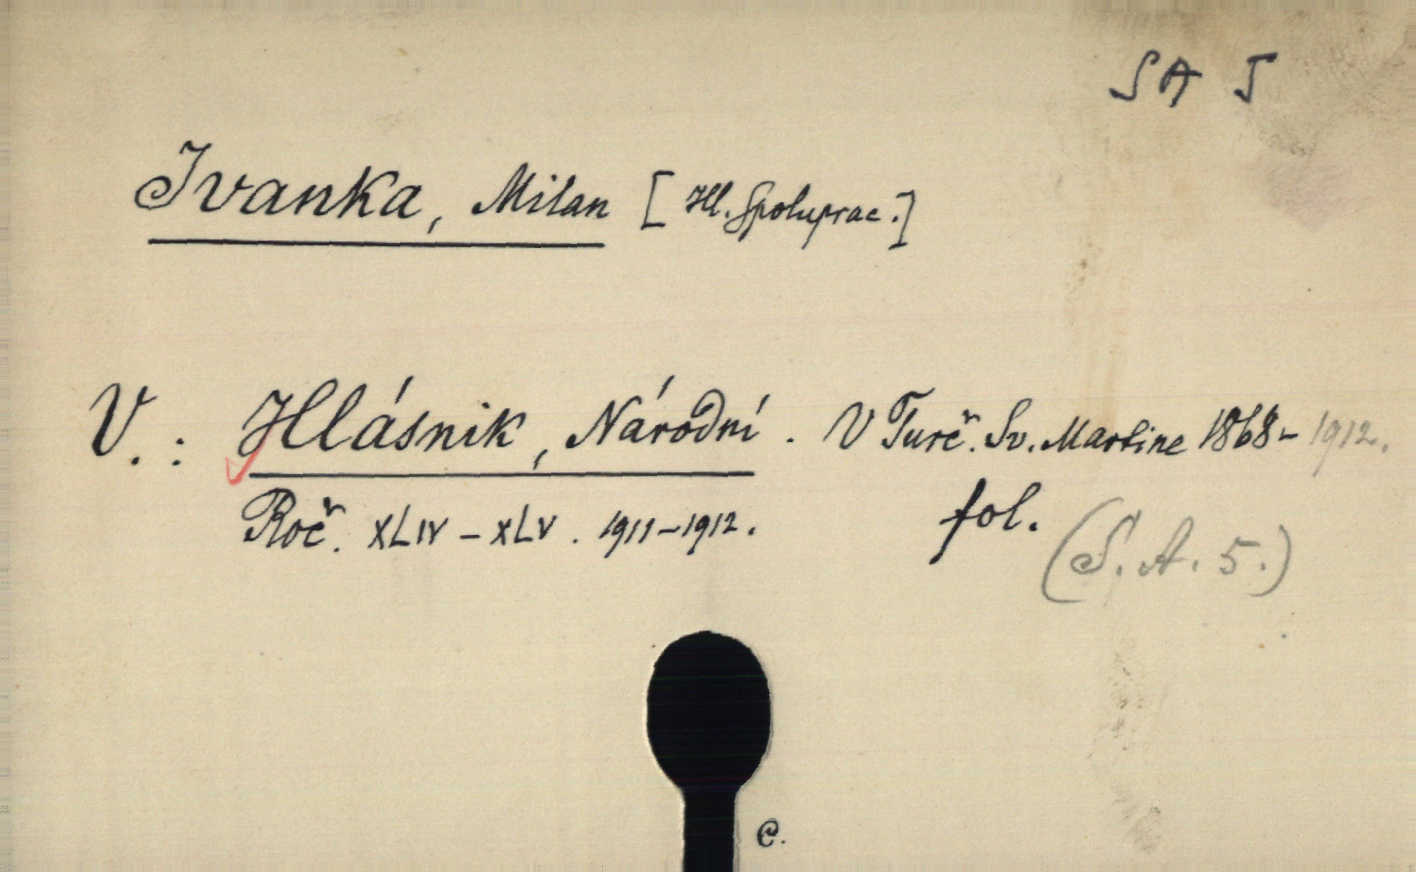 SA 5
Ivanka, Milan [Hl. spoluprac.]
V.: Hlásnik, Národní. V Turč. Sv. Martine 1868-1912.
Roč. XLIV-XLV. 1911-1912. fol.
(S. A. 5.)
C.